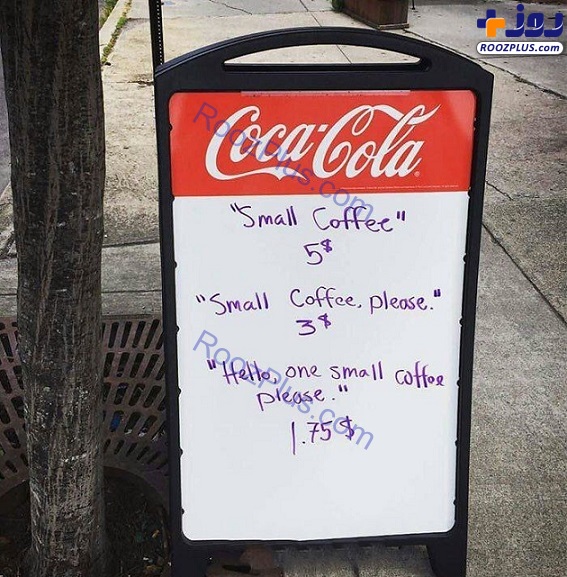 روز+
ROOZPLUS.com
Coca-Cola
"Small Coffee"
5$
"Small Coffee, please."
3$
"Hello, one small coffee
please."
1.75$
RoozPlus.com
RoozPlus.com